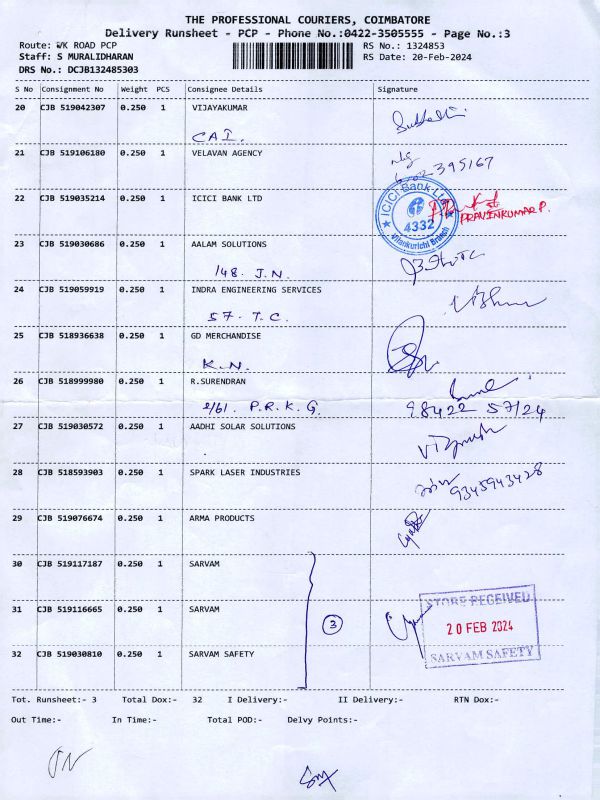 THE PROFESSIONAL COURIERS, COIMBATORE
Delivery Runsheet - PCP - Phone No.:0422-3505555 - Page No.:3
Route: VK ROAD PCP RS No.: 1324853
Staff: S MURALIDHARAN RS Date: 20-Feb-2024
DRS No.: DCJB132485303
S No Consignment No Weight PCS Consignee Details Signature
20 CJB 519042307 0.250 1 VIJAYAKUMAR
CAI.
21 CJB 519106180 0.250 1 VELAVAN AGENCY
22 CJB 519035214 0.250 1 ICICI BANK LTD
ICICI Bank Ltd
4332
Vilankurichi Branch
PRAVINKUMAR P.
23 CJB 519030686 0.250 1 AALAM SOLUTIONS
148. J.N.
24 CJB 519059919 0.250 1 INDRA ENGINEERING SERVICES
57. T.C.
25 CJB 518936638 0.250 1 GD MERCHANDISE
K.N.
26 CJB 518999980 0.250 1 R.SURENDRAN
2/61. P.R.K.G. 98422 57124
27 CJB 519030572 0.250 1 AADHI SOLAR SOLUTIONS
28 CJB 518593903 0.250 1 SPARK LASER INDUSTRIES
9345943428
29 CJB 519076674 0.250 1 ARMA PRODUCTS
30 CJB 519117187 0.250 1 SARVAM
31 CJB 519116665 0.250 1 SARVAM
3
STORE RECEIVED
20 FEB 2024
SARVAM SAFETY
32 CJB 519030810 0.250 1 SARVAM SAFETY
Tot. Runsheet:- 3 Total Dox:- 32 I Delivery:- II Delivery:- RTN Dox:-
Out Time:- In Time:- Total POD:- Delvy Points:-